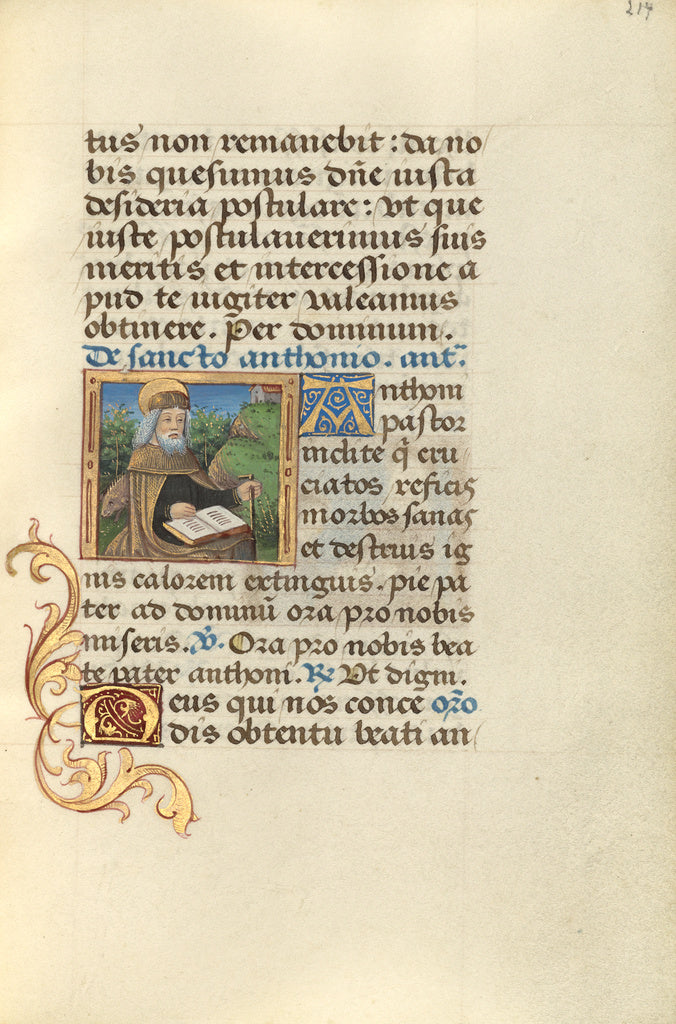 217
tus non remanebit : da no
bis quesumus dñe iusta
desideria postulare : vt que
iuste postulauerimus suis
meritis et intercessione a
pud te iugiter valeamus
obtinere . Per dominum .
De sancto anthonio . antˀ.
Anthoni
pastor
inclite q̃ cru
ciatos reficis
morbos sanas
et destruis ig
nis calorem extinguis . pie pa
ter ad dominũ ora pro nobis
miseris . ℣. Ora pro nobis bea
te pater anthoni . ℟ Vt digni .
Deus qui nos conce oro̅
dis obtentu beati an